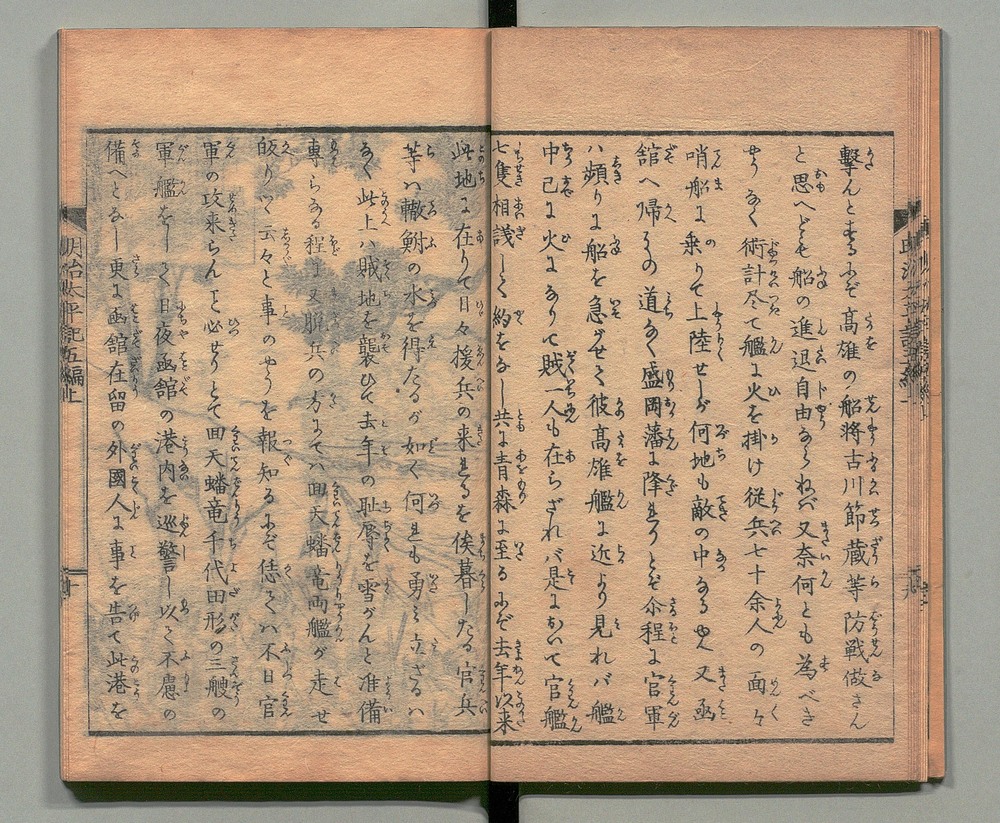 撃んとするにぞ高雄の船将古川節蔵等防戦做さん
と思へども船の進退自由ならねバ又奈何とも為べき
やうなく術計尽て艦に火を掛け従兵七十余人の面々
哨船に乗りて上陸せしが何地も敵の中なるゆゑ又函
舘へ帰るの道なく盛岡藩に降りけるとぞ尒程に官軍
ハ頻りに船を急がせて彼高雄艦に近より見れバ艦
中已に火になりて賊一人も在らざれバ是において官艦
七隻相議して約をなし共に青森に至るにぞ去年以来
此地に在りて日々援兵の来るを俟暮したる官兵
等ハ轍鮒の水を得たるが如く何れも勇み立ざるハ
なく此上ハ賊地を襲ひて去年の恥辱を雪がんと准備
専らなる程に又脱兵の方にてハ回天蟠竜両艦が走せ
皈りて云々と事のやうを報知るにぞ恁てハ不日官
軍の攻来らんこと必せりとて回天蟠竜千代田形の三艘の
軍艦をして日夜函舘の港内を巡警し以て不慮の
備へとなし更に函舘在留の外國人に事を告て此港を
明治太平記五編上